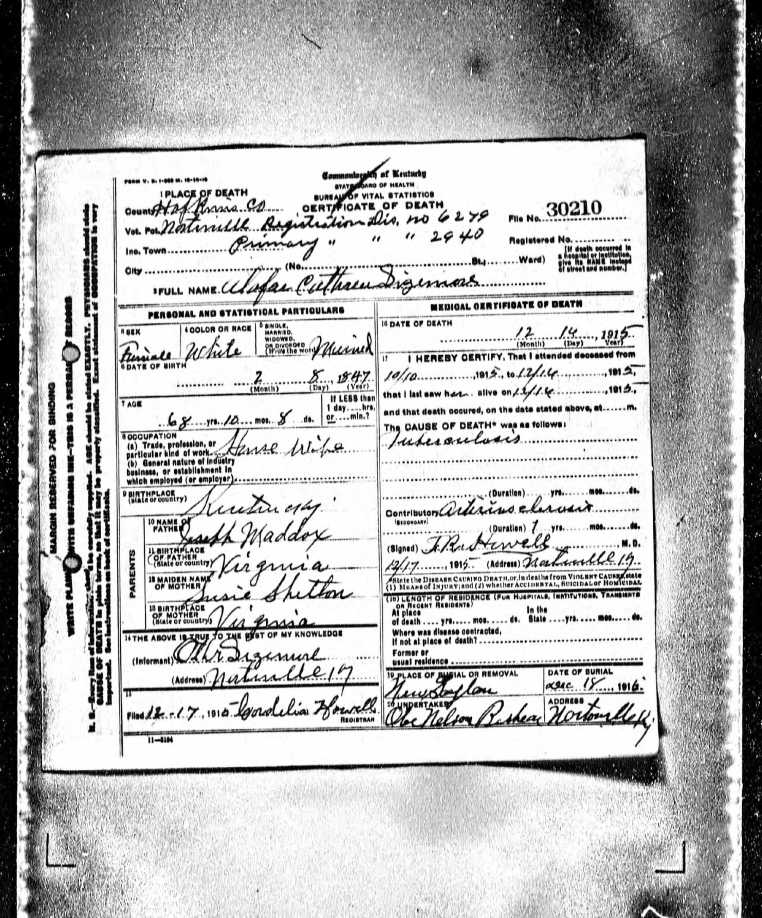 FORM V. S. 1-
Commonwealth of Kentucky
STATE BOARD OF HEALTH
BUREAU OF VITAL STATISTICS
CERTIFICATE OF DEATH
1 PLACE OF DEATH
County Hopkins Co
File No. 30210
Vot. Pct. Nortonville Registration Dis. no 6279
Registered No.
Inc. Town Primary " " " 2940
City (No. St., Ward)
[If death occurred in a hospital or institution, give its NAME instead of street and number.]
2 FULL NAME Sizemore
PERSONAL AND STATISTICAL PARTICULARS
3 SEX Female
4 COLOR OR RACE White
5 SINGLE, MARRIED, WIDOWED, OR DIVORCED (Write the word) Married
6 DATE OF BIRTH
2 8 1847
(Month) (Day) (Year)
7 AGE
68 yrs. 10 mos. 8 ds.
If LESS than 1 day....hrs. or....min.?
8 OCCUPATION
(a) Trade, profession, or particular kind of work House Wife
(b) General nature of industry business, or establishment in which employed (or employer)
9 BIRTHPLACE (State or country) Kentucky
PARENTS
10 NAME OF FATHER Joseph Maddox
11 BIRTHPLACE OF FATHER (State or country) Virginia
12 MAIDEN NAME OF MOTHER Susie Shelton
13 BIRTHPLACE OF MOTHER (State or country) Virginia
14 THE ABOVE IS TRUE TO THE BEST OF MY KNOWLEDGE
(Informant) Sizemore
(Address) Nortonville Ky
15
Filed 12-17, 1915 Cordelia Howell
REGISTRAR
11-3184
MEDICAL CERTIFICATE OF DEATH
16 DATE OF DEATH
12 14, 1915
(Month) (Day) (Year)
17 I HEREBY CERTIFY, That I attended deceased from
10/10, 1915, to 12/14, 1915,
that I last saw her alive on 12/14, 1915,
and that death occured, on the date stated above, at m.
The CAUSE OF DEATH* was as follows:
Tuberculosis
(Duration) yrs. mos. ds.
Contributory Arteriosclerosis
(SECONDARY)
(Duration) 1 yrs. mos. ds.
(Signed) Howell M.D.
12/17, 1915 (Address) Nortonville Ky
*State the DISEASE CAUSING DEATH, or, in deaths from VIOLENT CAUSES, state (1) MEANS OF INJURY; and (2) whether ACCIDENTAL, SUICIDAL or HOMICIDAL
18 LENGTH OF RESIDENCE (FOR HOSPITALS, INSTITUTIONS, TRANSIENTS OR RECENT RESIDENTS)
At place of death yrs. mos. ds. In the State yrs. mos. ds.
Where was disease contracted, if not at place of death?
Former or usual residence
19 PLACE OF BURIAL OR REMOVAL
New
DATE OF BURIAL
Dec 18, 1915
20 UNDERTAKER
Nelson
ADDRESS
Nortonville Ky
MARGIN RESERVED FOR BINDING